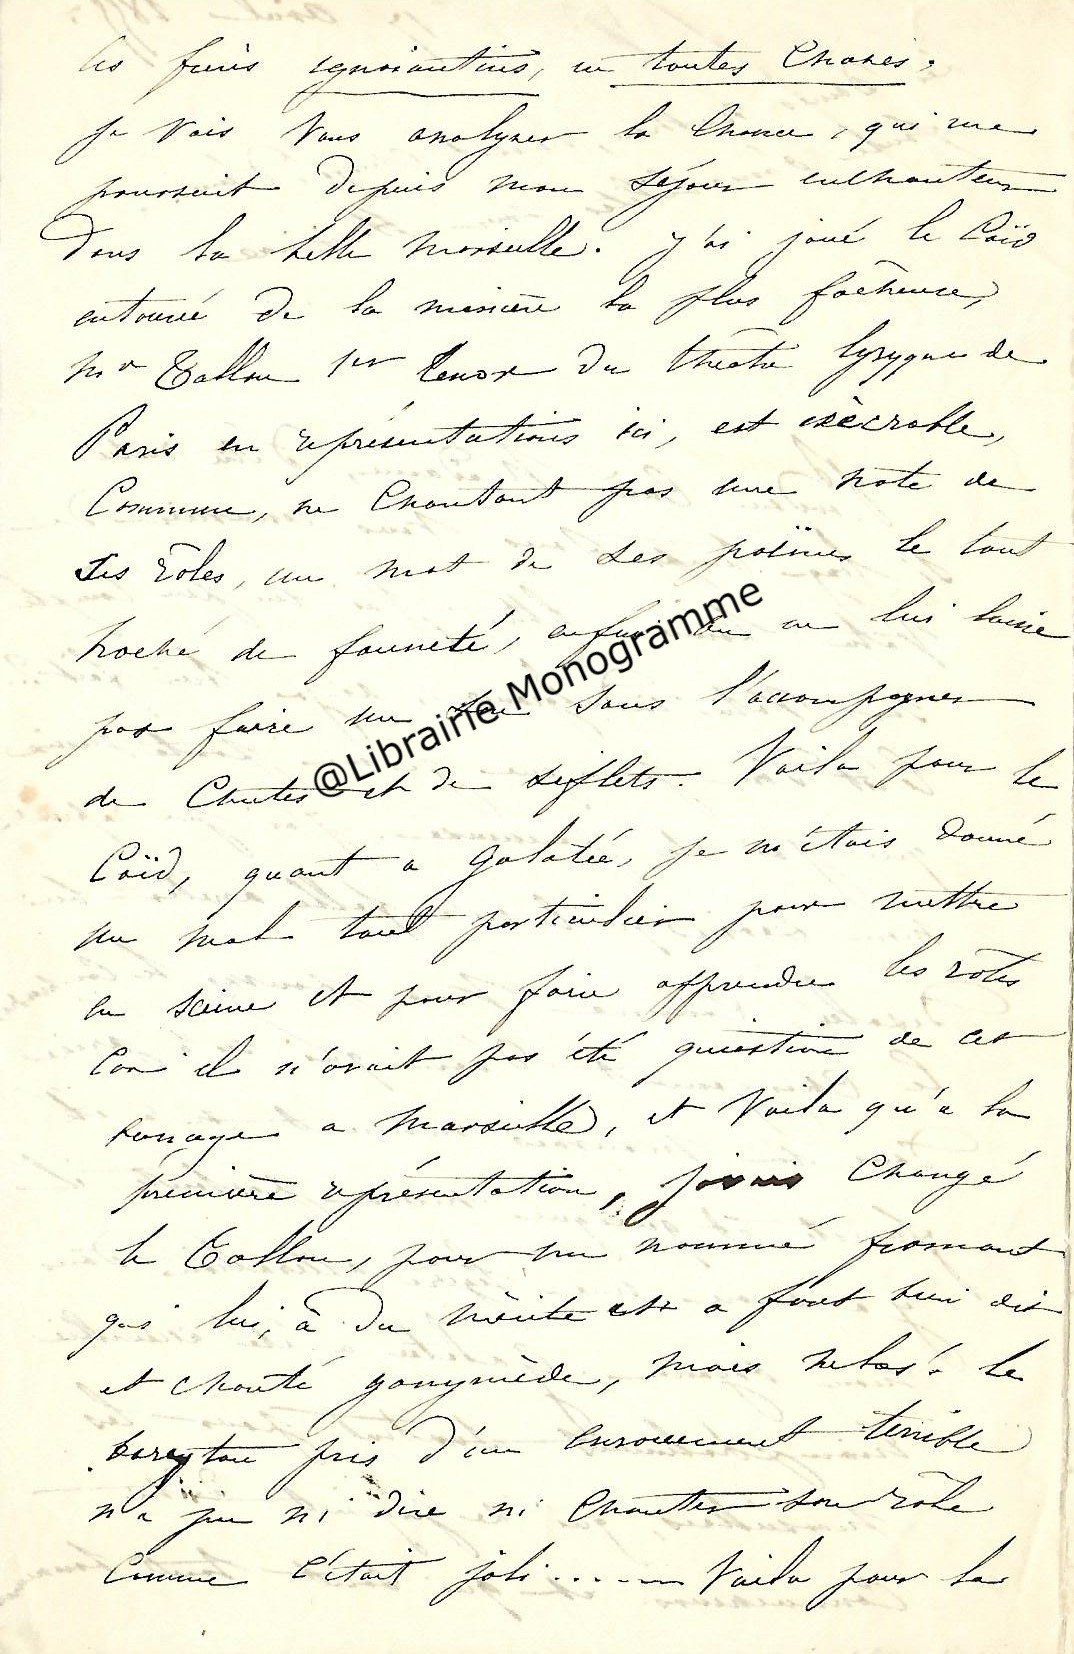 les frères ignorantins, en toutes choses.
je vais vous analyser la chance, qui me
poursuit depuis mon séjour enchanteur
dans la belle Marseille. j'ai joué le Caïd
entouré de la manière la plus fâcheuse,
Mr Tallon 1er tenor du théâtre lyryque de
Paris en représentations ici, est exècrable,
Commun, ne chantant pas une note de
ses rôles, un mot de ses poëmes le tout
de fausseté, enfin on ne lui laisse
pas faire un sans l'accompagner
de chutes et de sifflets. Voila pour le
Caïd, quant a Galatée, je m'étais donné
un mal tout particulier pour mettre
en scène et pour faire apprendre les rôles
car il n'avait pas été question de cet
ouvrage a Marseille, et voila qu'a la
première représentation, j'avais changé
le Tallon, pour un nommé fromant
qui lui, à du mérite et a fort bien dit
et chanté ganymède, mais helas! le
baryton pris d'un enrouement terrible
n'a pu ni dire ni chanter son rôle
comme c'était joli...... Voila pour la
@Librairie Monogramme